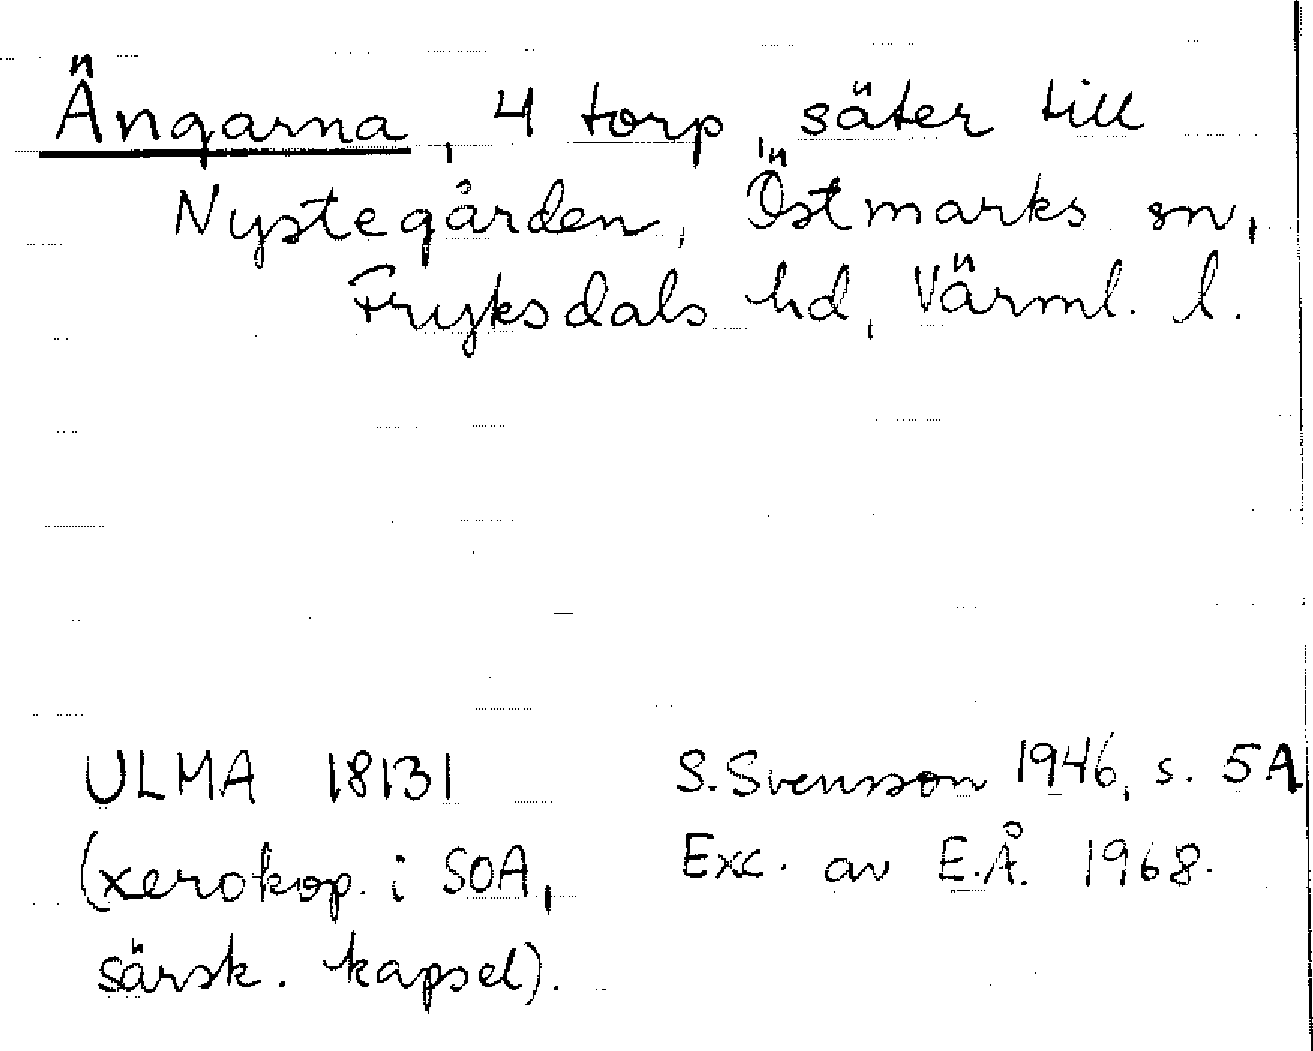 Ängarna, 4 torp, säter till
Nystegården, Östmarks sn,
Fryksdals hd, Värml. l.
ULMA 18131
(xerokop. i SOA,
särsk. kapsel).
S. Svensson 1946, s. 5A
Exc. av E.Å. 1968.